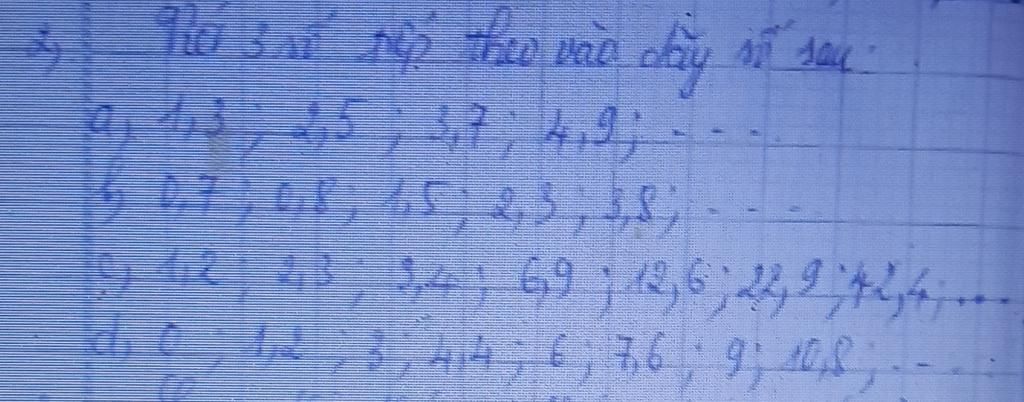 2, Viết 3 số tiếp theo vào dãy số sau:
a, 1,3 ; 2,5 ; 3,7 ; 4,9 ; ....
b, 0,7 ; 0,8 ; 1,5 ; 2,3 ; 3,8 ; ....
c, 1,2 ; 2,3 ; 3,4 ; 6,9 ; 12,6 ; 22,9 ; 42,4 ; ....
d, 0 ; 1,2 ; 3 ; 4,4 ; 6 ; 7,6 ; 9 ; 10,8 ; ....